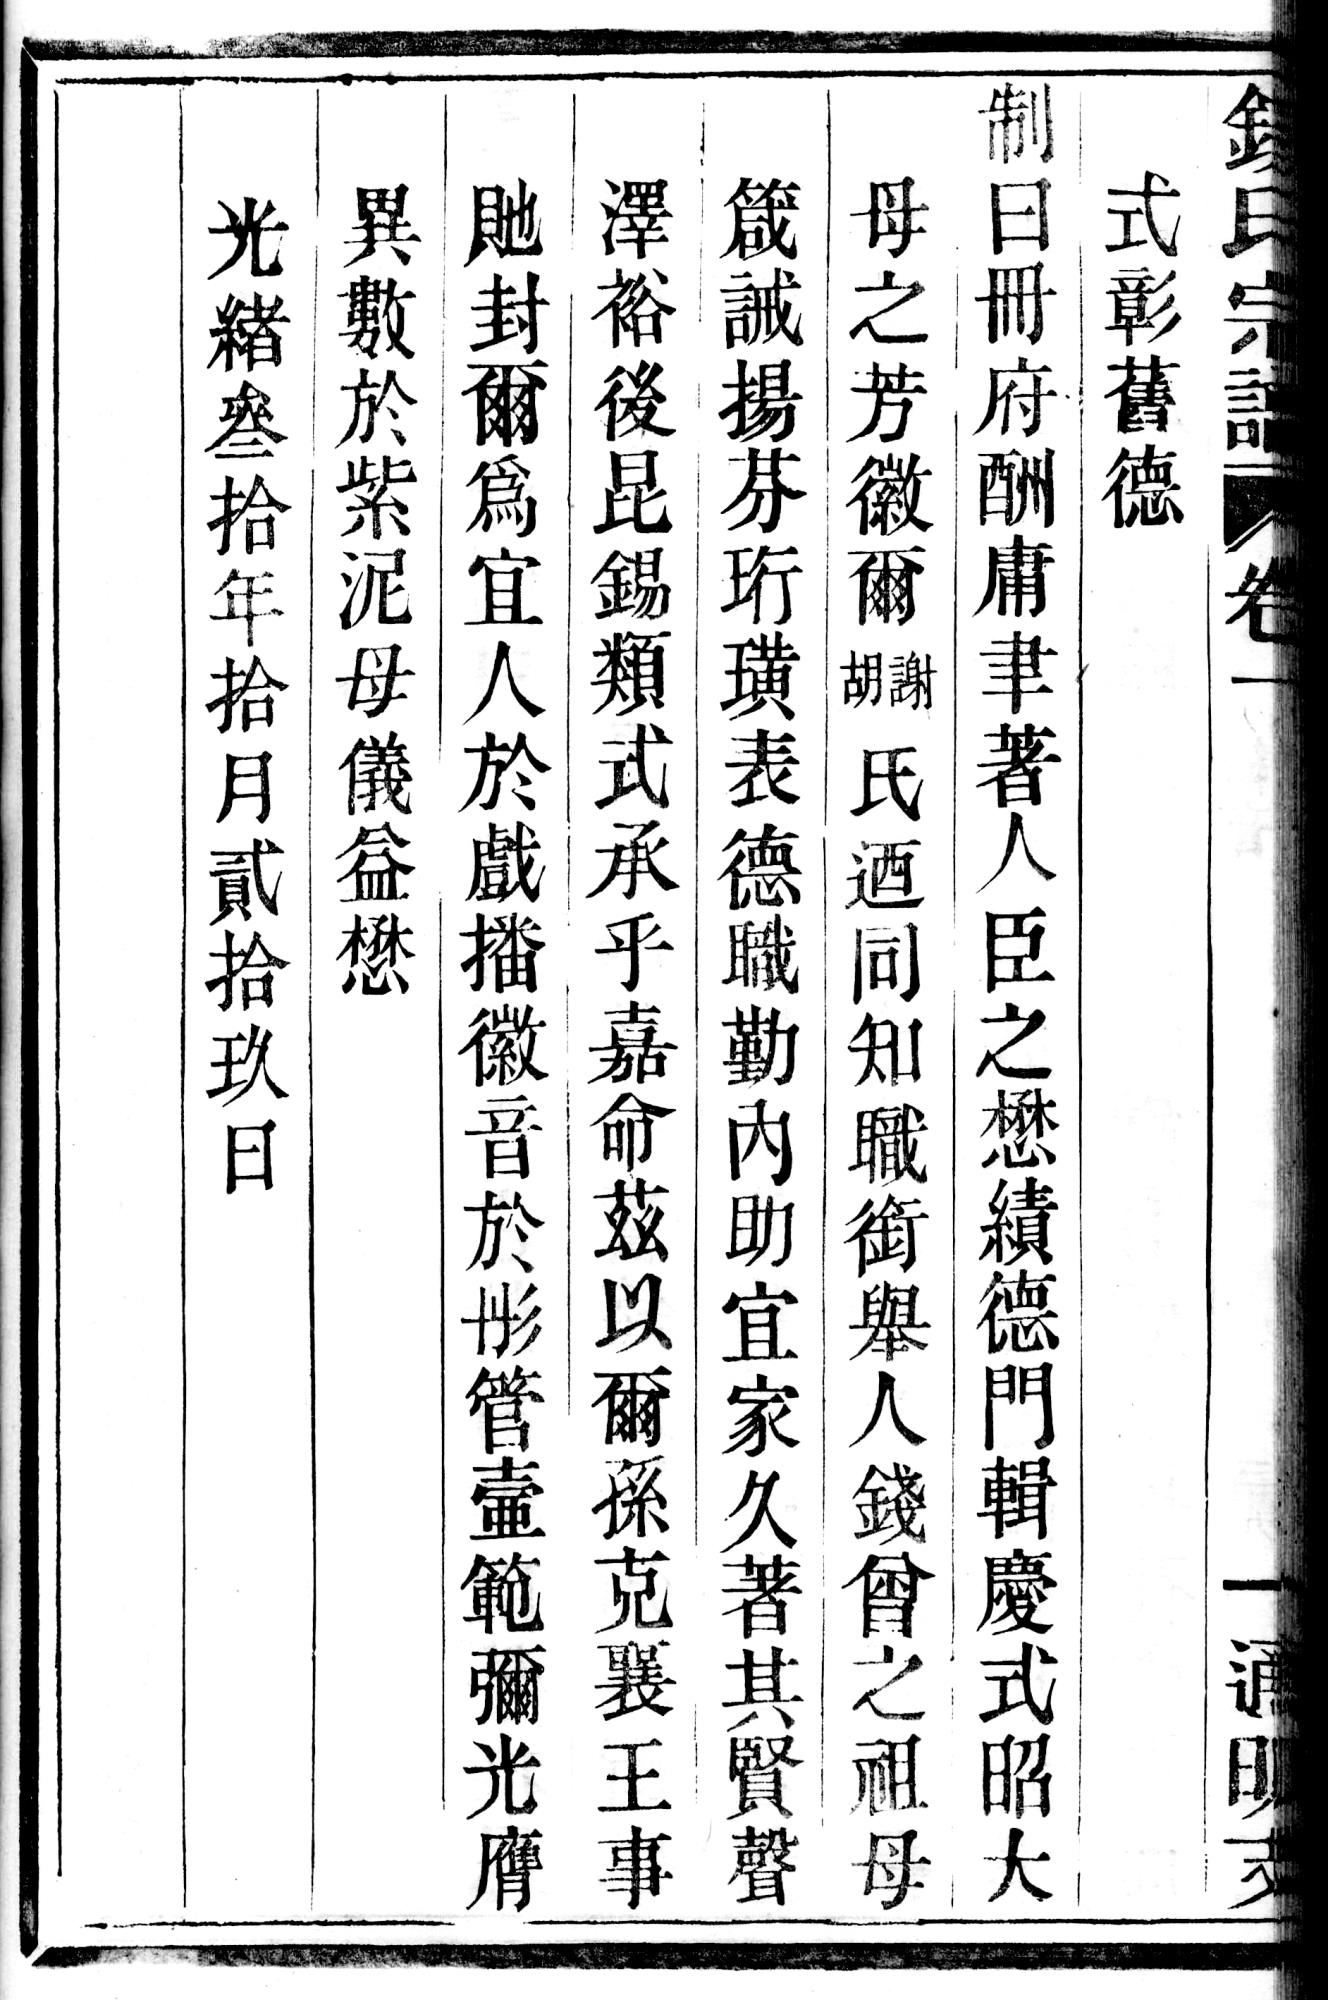 錢氏宗譜 卷一 一 通明
式彰舊德
制曰冊府酬庸聿著人臣之懋績德門輯慶式昭大
母之芳徽爾謝胡氏迺同知職銜舉人錢曾之祖母
箴誡揚芬珩璜表德職勤內助宜家久著其賢聲
澤裕後昆錫類式承乎嘉命茲以爾孫克襄王事
貤封爾爲宜人於戲播徽音於彤管壼範彌光膺
異數於紫泥母儀益懋
光緒叄拾年拾月貳拾玖日